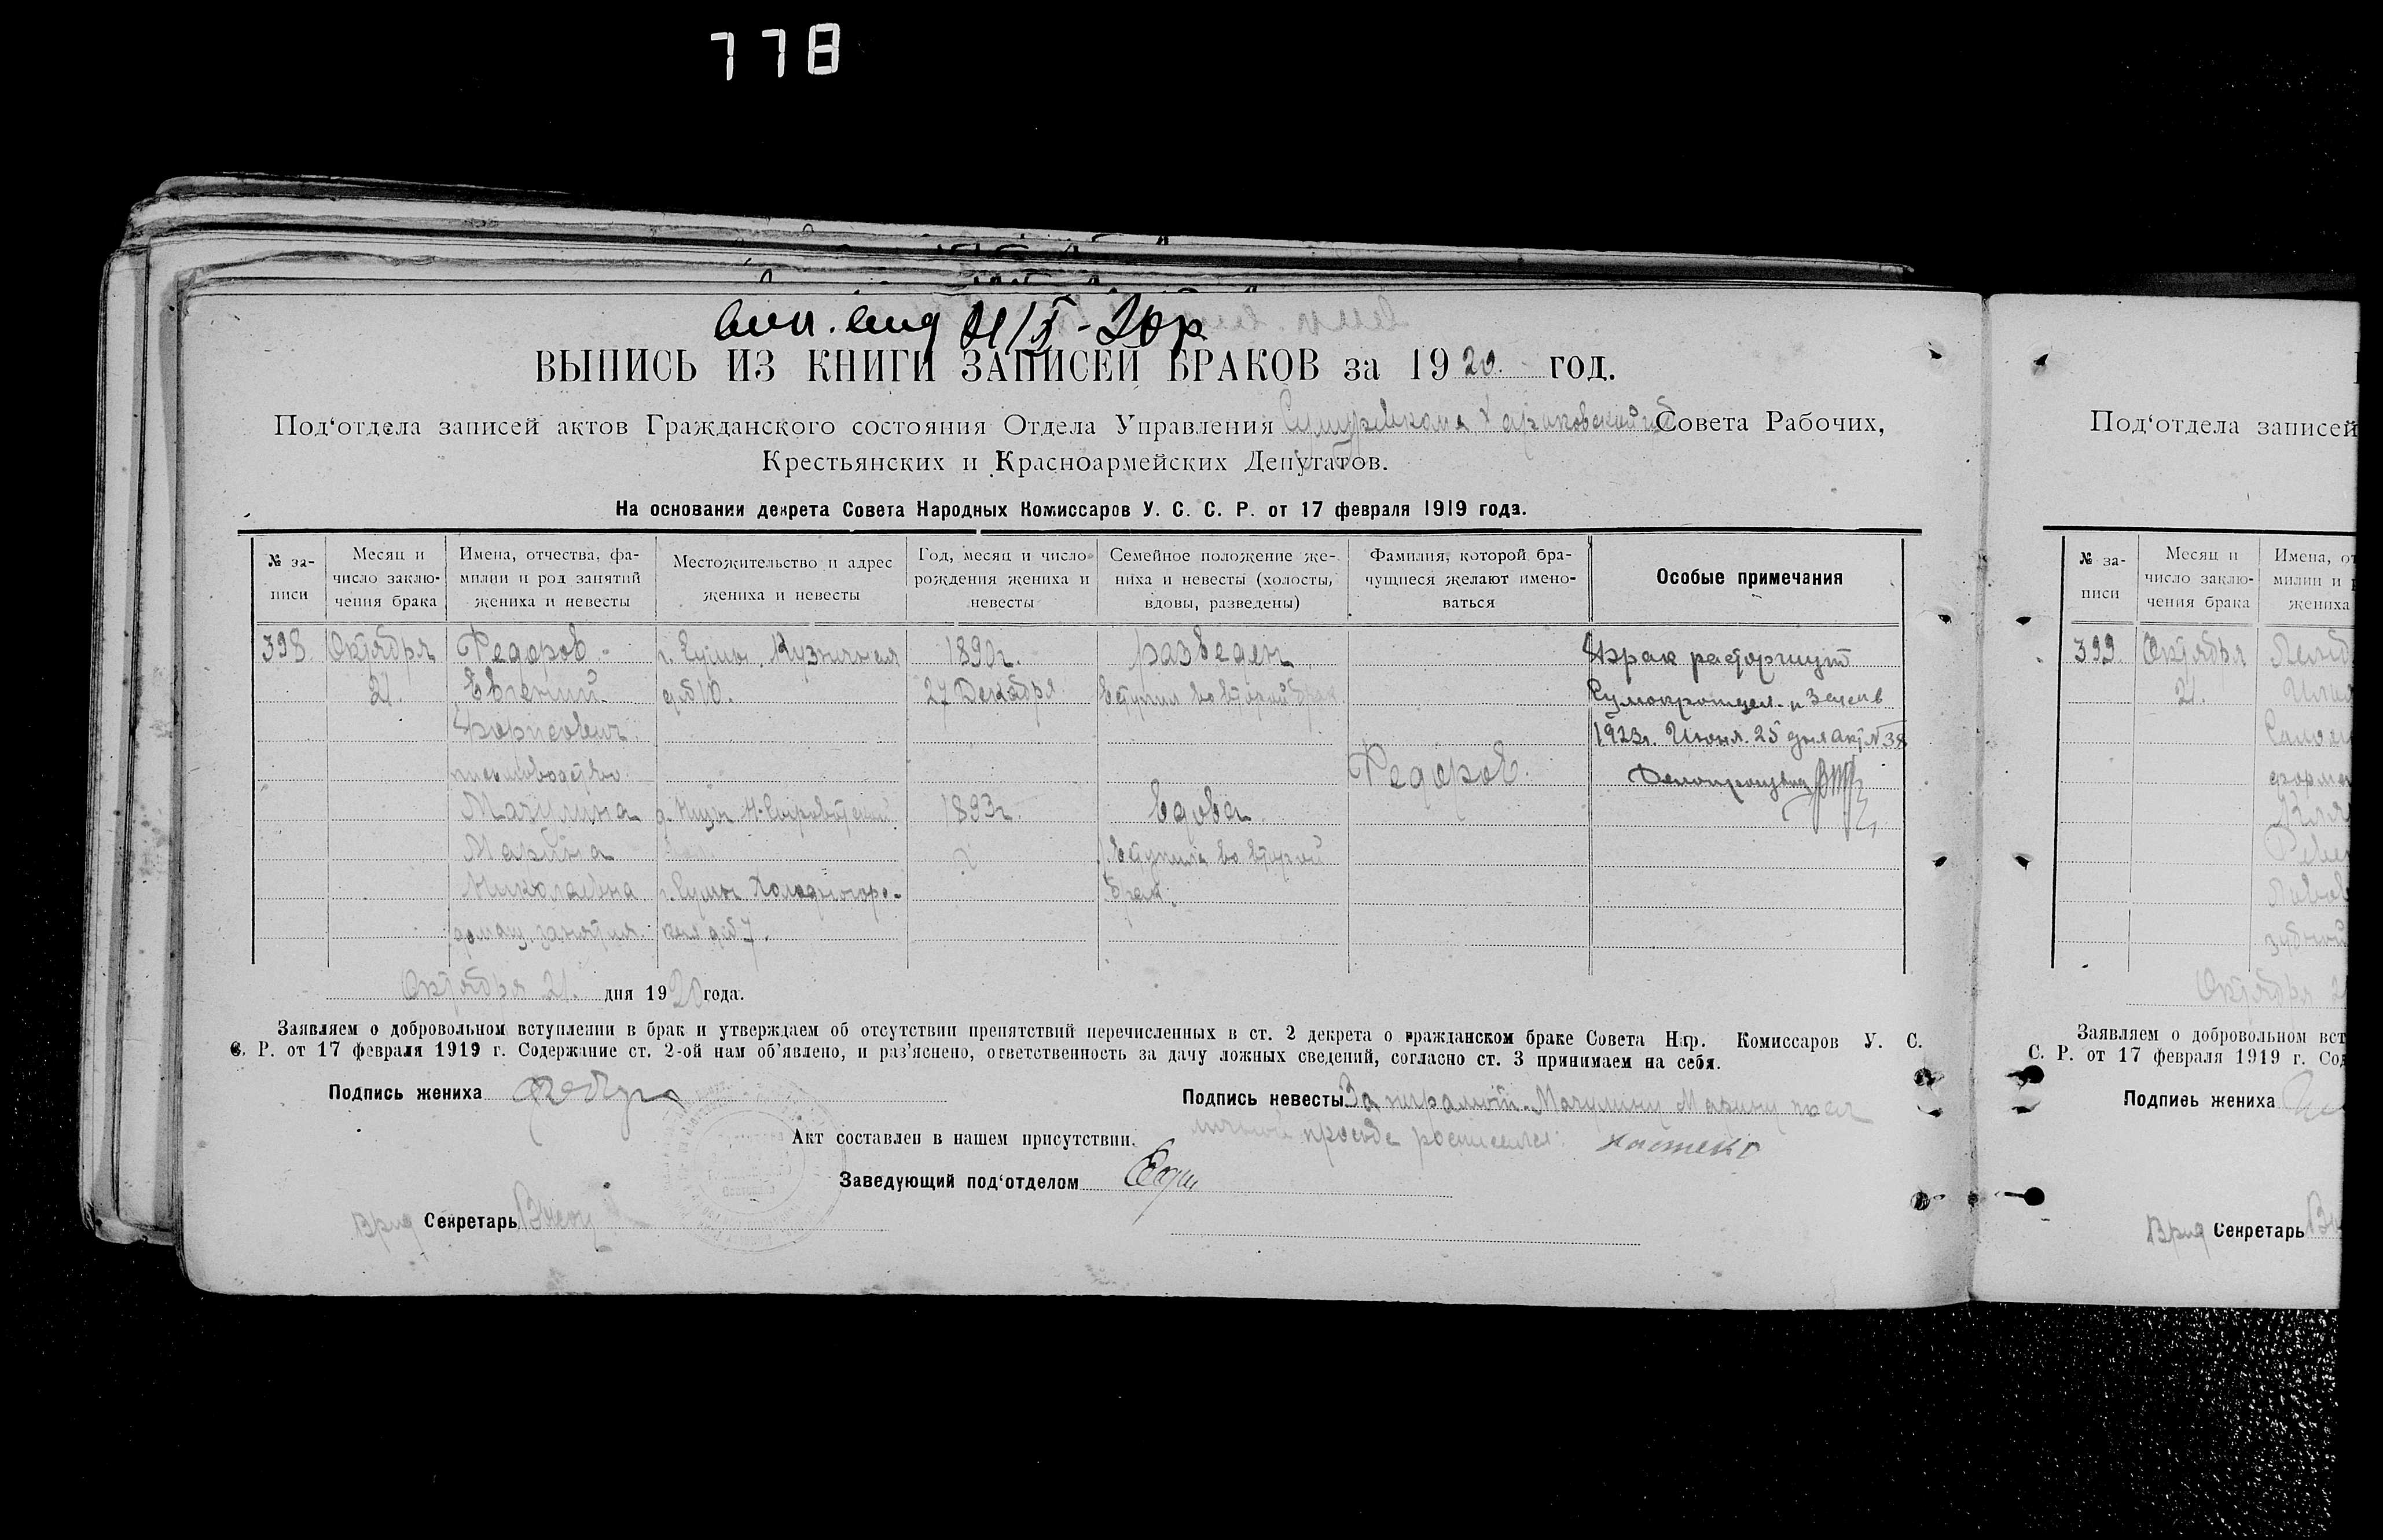 778
21/X - 20 р
ВЫПИСЬ ИЗ КНИГИ ЗАПИСЕЙ БРАКОВ за 1920. год.
Под‘отдела записей актов Гражданского состояния Отдела Управления Харьковской Совета Рабочих,
Крестьянских и Красноармейских Депутатов.
На основании декрета Совета Народных Комиссаров У. С. С. Р. от 17 февраля 1919 года.
№ за-
писи
Месяц и
число заклю-
чения брака
Имена, отчества, фа-
милии и род занятий
жениха и невесты
Местожительство и адрес
жениха и невесты
Год, месяц и число
рождения жениха и
невесты
Семейное положение же-
ниха и невесты (холосты,
вдовы, разведены)
Фамилия, которой бра-
чущиеся желают имено-
ваться
Особые примечания
398
Октября
21.
Федоров
Евгений
Борисович
письмоводство
г. Сумы. Кузничная
д№10.
1890г.
27 Декабря
разведен
Вступил во второй брак
Мачулина
Марина
Николаевна
домаш. занятия.
г. Сумы Холодногорс-
кая д№7.
1893г.
вдова
Вступила во второй
брак.
Федоров.
Брак расторгнут
1923г. Июня. 25 дня акт №38
Делопроизвод
Октября 21. дня 1920 года.
Заявляем о добровольном вступлении в брак и утверждаем об отсутствии препятствий перечисленных в ст. 2 декрета о гражданском браке Совета Нар. Комиссаров У. С.
С. Р. от 17 февраля 1919 г. Содержание ст. 2-ой нам об’явлено, и раз’яснено, ответственность за дачу ложных сведений, согласно ст. 3 принимаем на себя.
Подпись жениха
Подпись невесты За неграмотн. Мачулину Марину по ея
личной просьбе росписался:
Акт составлен в нашем присутствии.
Заведующий под‘отделом
Врид Секретарь
Под‘отдела записей
№ за-
писи
Месяц и
число заклю-
чения брака
Имена, от
милии и р
жениха
399
Октября
21.
Октября 2
Заявляем о добровольном вст
С. Р. от 17 февраля 1919 г. Сод
Подпись жениха
Врид Секретарь